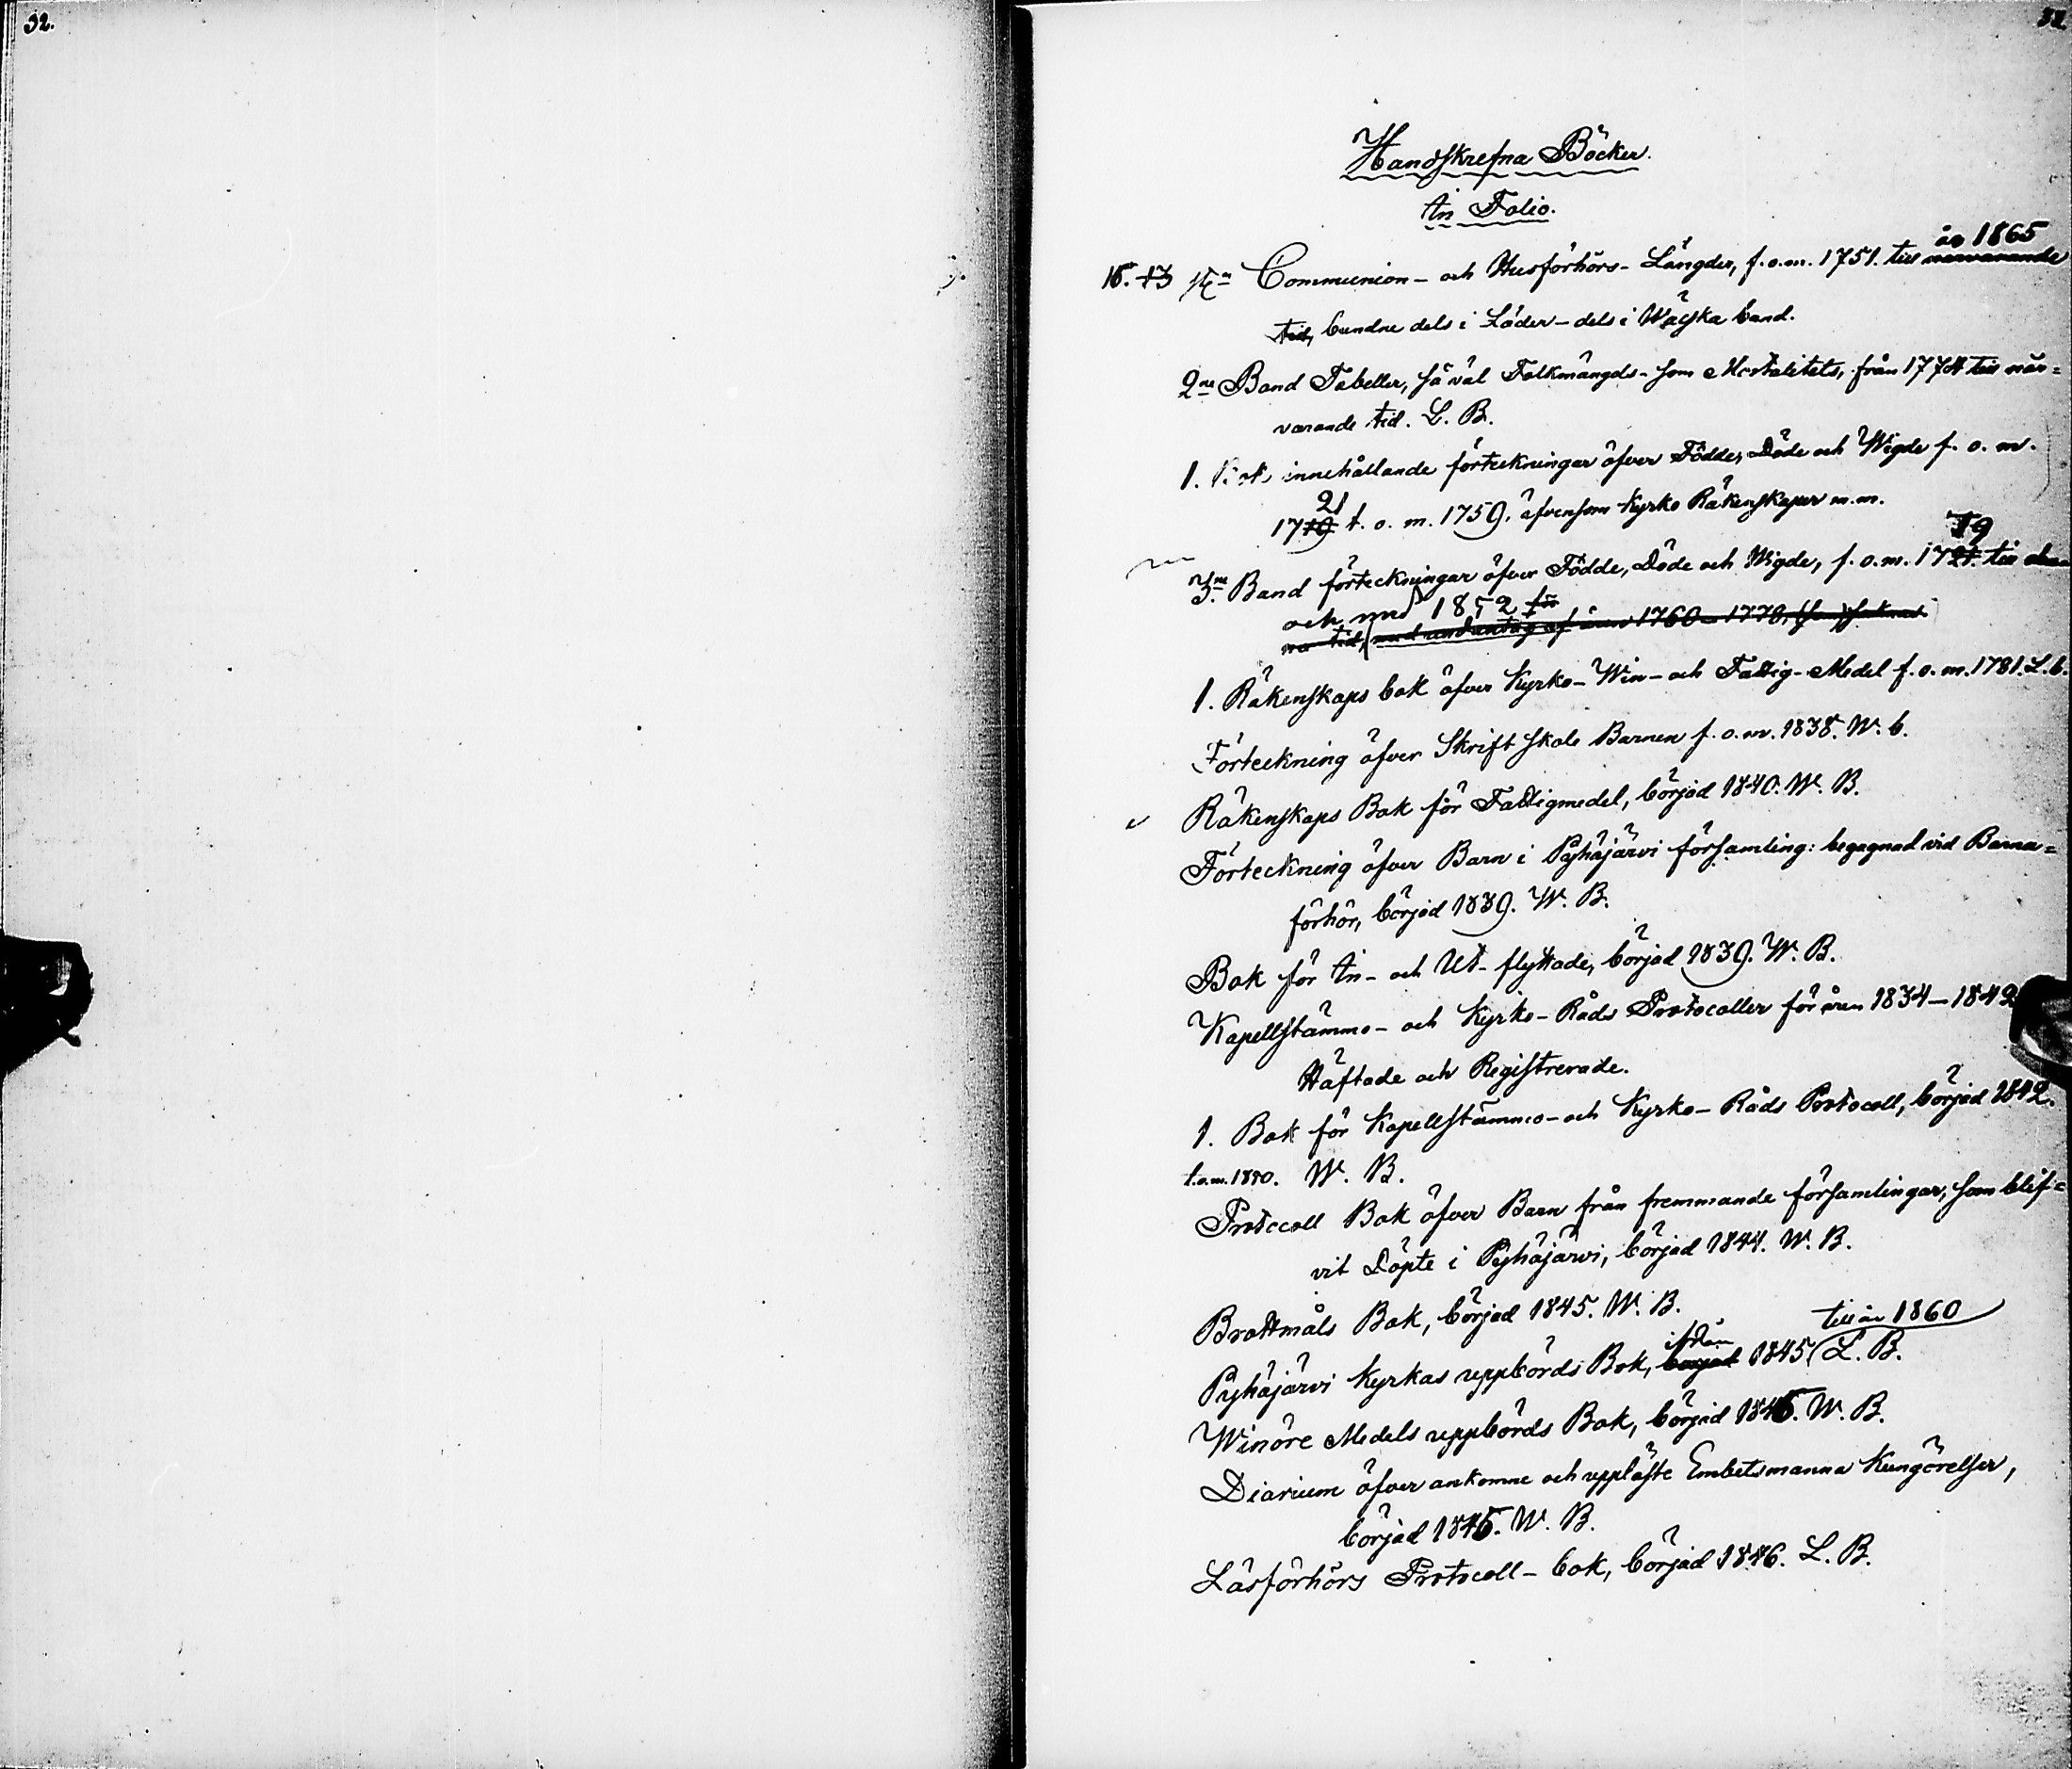 32.
32.
Handskrefna Böcker.
In Folio.
år 1865
15. 13 Communion- och Husförhörs-Längder, f.o.m. 1751. till närvarande
tid, bundne dels i Läder- dels i Wälska band.
2ne Band Tabeller, så väl Folkmängds- som Mortalitets, från 1774 till när=
varande tid. L. B.
1. Bok innehållande förteckningar öfver Födde, Döde och Wigde f. o. m.
21
1719 t. o. m. 1759. äfvensom Kyrko Räkenskaper m.m.
19
3ne Band förteckningar öfver Födde, Döde och Wigde, f. o. m. 1721. till denna
och med 1852
na tid, med undantag af åren 1760-1770, som saknas
1. Räkenskaps bok öfver Kyrko- Win- och Fattig-Medel f. o. m. 1781. L. b.
Förteckning öfver Skrift skole Barnen f. o. m. 1838. W. b.
Räkenskaps Bok för Fattigmedel, börjad 1840. W. B.
Förteckning öfver Barn i Pyhäjärvi församling: begagnad vid Barna=
förhör, börjad 1839. W. B.
Bok för In- och Ut-flyttade, börjad 1839. W. B.
Kapellstämmo- och Kyrko-Råds Protocoller för åren 1834-1842
Häftade och Registrerade.
1. Bok för Kapellstämmo- och Kyrko-Råds Protocoll, börjad 1842.
t.o.m. 1890. W. B.
Protocoll Bok öfver Barn från fremmande församlingar, som blif=
vit Döpte i Pyhäjärvi, börjad 1844. W. B.
Brottmåls Bok, börjad 1845. W. B.
till år 1860
ifrån
Pyhäjärvi Kyrkas uppbörds Bok, börjad 1845 L. B.
Winöre Medels uppbörds Bok, börjad 1845. W. B.
Diarium öfver ankomne och uppläste Embetsmanna Kungörelser,
börjad 1845. W. B.
Läsförhörs Protocoll-bok, börjad 1846. L. B.